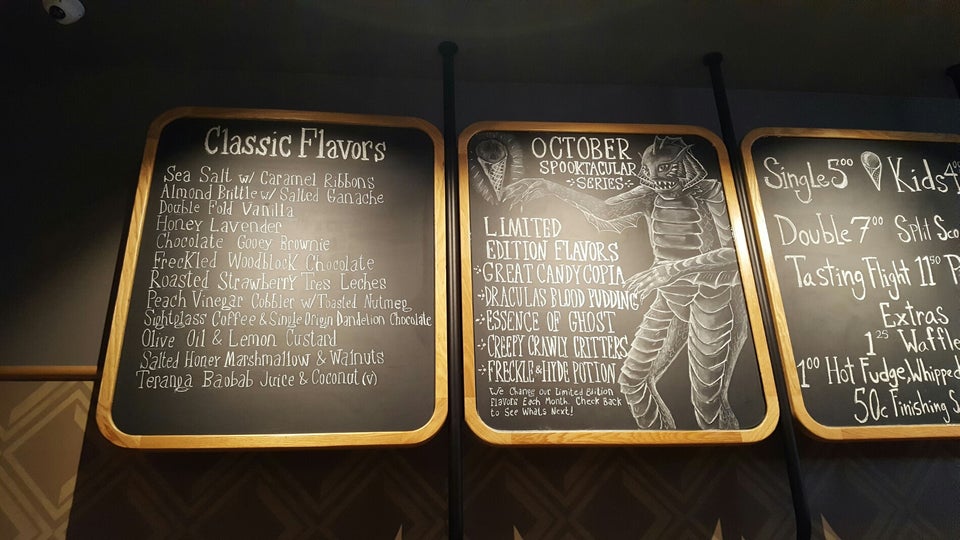 Classic Flavors
Sea Salt w/ Caramel Ribbons
Almond Brittle w/ Salted Ganache
Double Fold Vanilla
Honey Lavender
Chocolate Gooey Brownie
Freckled Woodblock Chocolate
Roasted Strawberry Tres Leches
Peach Vinegar Cobbler w/ Toasted Nutmeg
Sightglass Coffee & Single Origin Dandelion Chocolate
Olive Oil & Lemon Custard
Salted Honey Marshmallow & Walnuts
Teranga Baobab Juice & Coconut (v)
OCTOBER
SPOOKTACULAR
SERIES
LIMITED
EDITION FLAVORS
GREAT CANDYCOPIA
DRACULAS BLOOD PUDDING
ESSENCE OF GHOST
CREEPY CRAWLY CRITTERS
FRECKLE & HYDE POTION
We Change our Limited Edition
Flavors Each Month. Check Back
to See Whats Next!
Single 5⁰⁰ Kids 4
Double 7⁰⁰ Split Sco
Tasting Flight 11⁵⁰ P
Extras
1²⁵ Waffle
1⁰⁰ Hot Fudge, Whipped
50c Finishing S